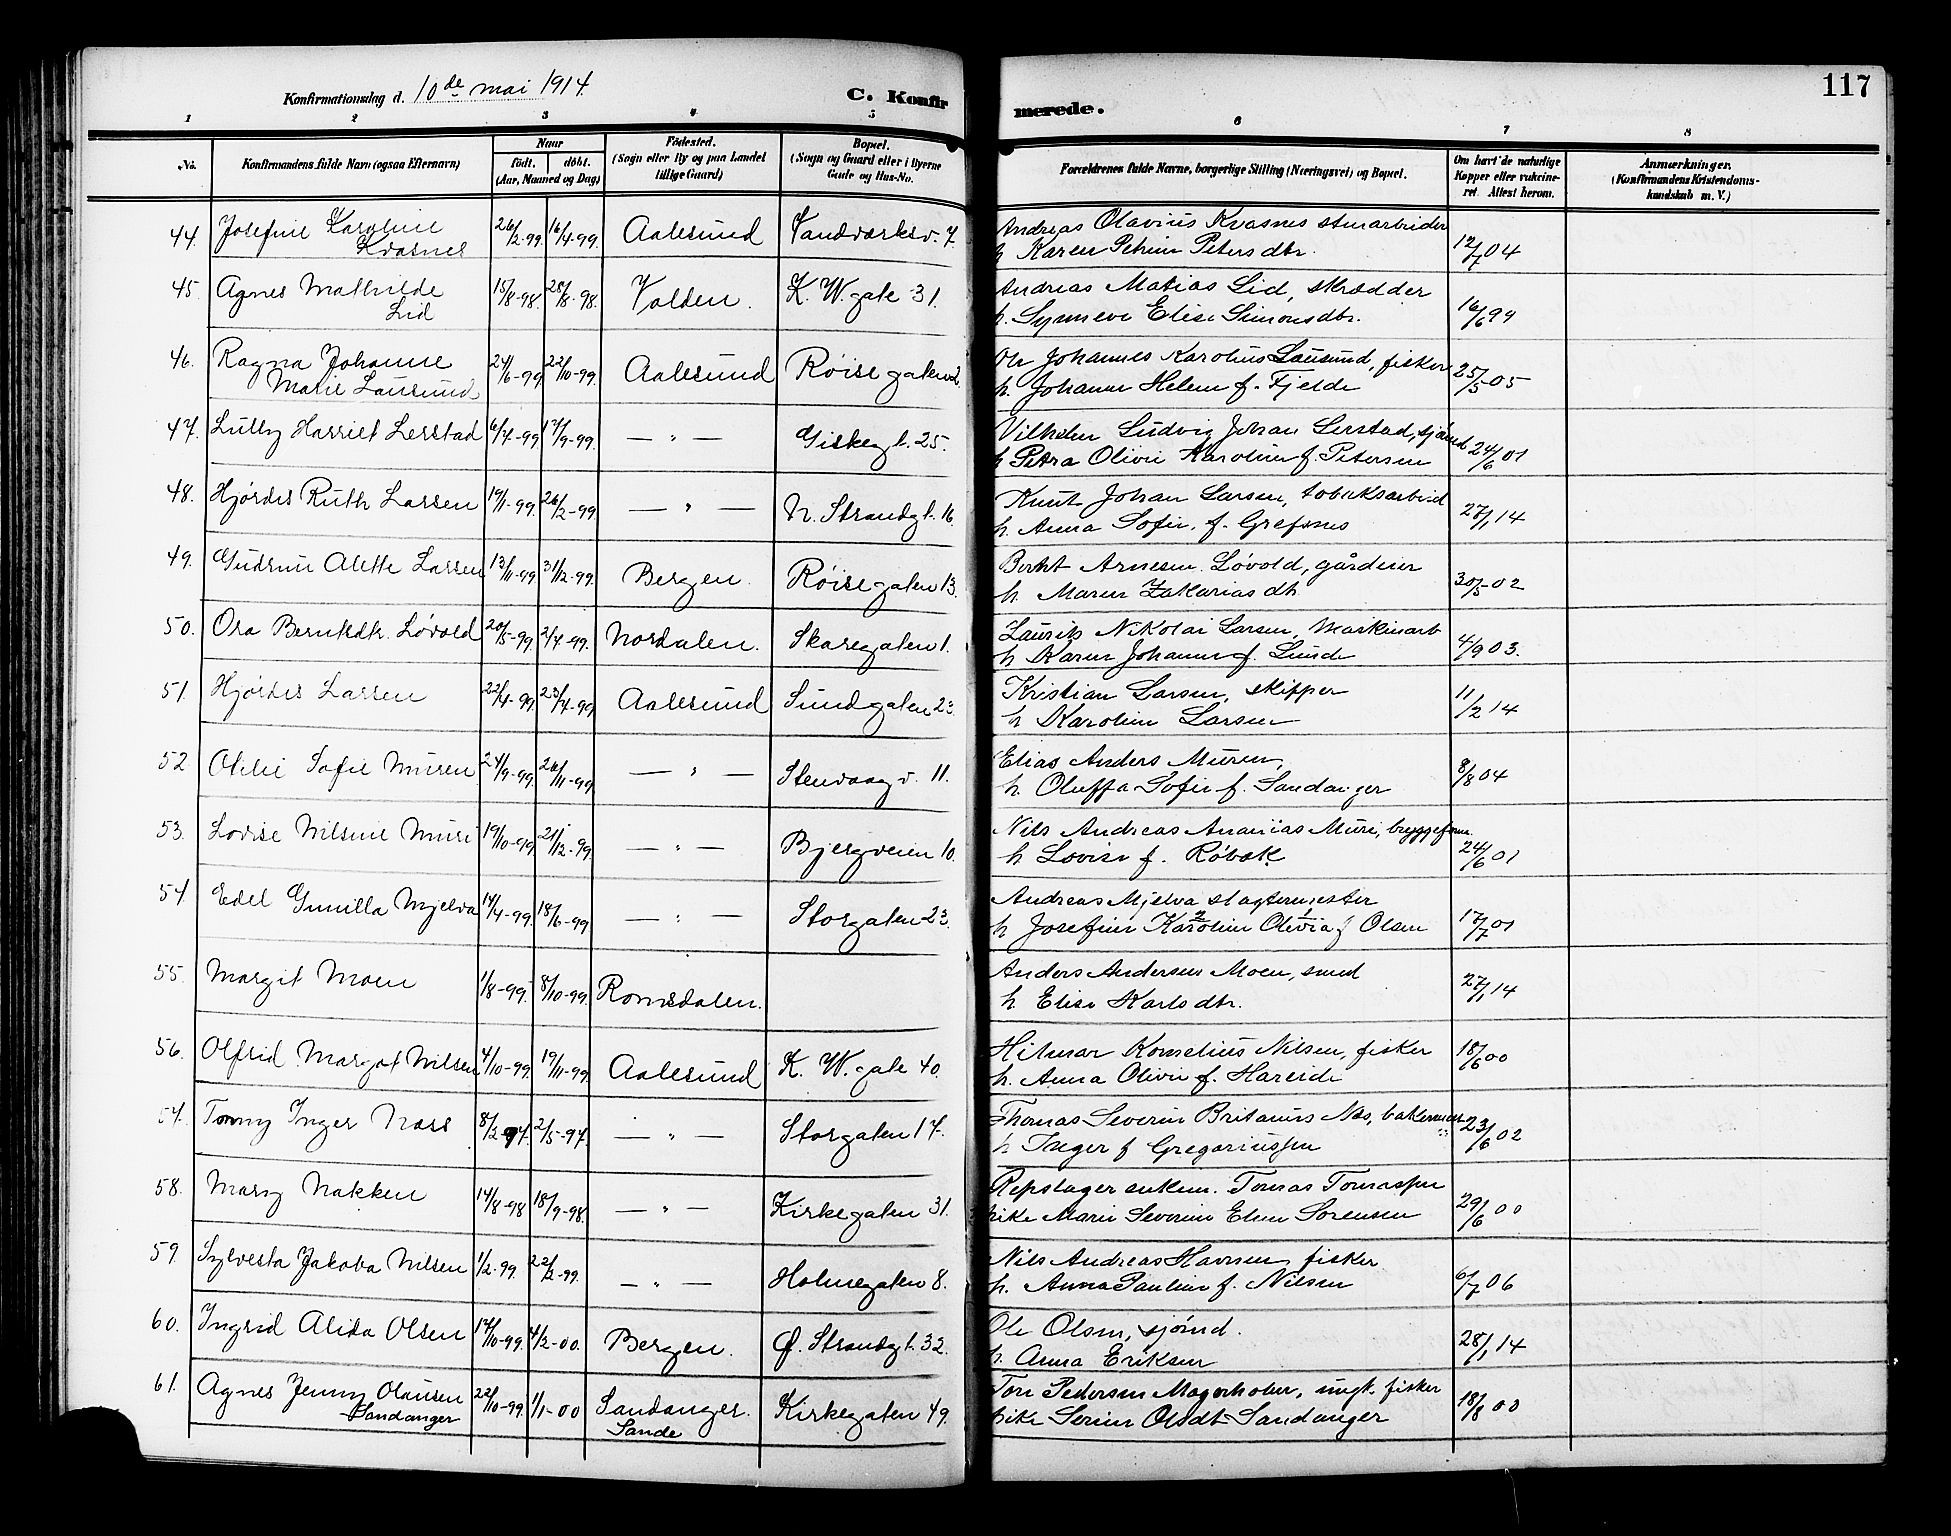 Konfirmationsdag d. 10de mai 1914.
C. Konfirmerede.
117
1 2 3 4 5 6 7 8
No. Konfirmandens fulde Navn (ogsaa Efternavn) Naar født. døbt. (Aar, Maaned og Dag) Fødested. (Sogn eller By og paa Landet tillige Gaard) Bopæl. (Sogn og Gaard eller i Byerne Gade og Hus-No. Forældrenes fulde Navne, borgerlige Stilling (Næringsvei) og Bopæl. Om havt de naturlige Kopper eller vaksineret. Attest herom. Anmærkninger. (Konfirmandens Kristendomskundskab m. V.)
44. Josefine Karoline Kvasnes 26/2-99. 16/4-99. Aalesund Vandværksv. 7. Andreas Olavius Kvasnes stuarbeider
h. Karen Petrine Petersdtr. 12/7 04
45. Agnes Mathilde Lid 15/8-98. 28/8-98. Volden. K. W. gate 31. Andreas Matias Lid, skrædder
h. Synneve Elise Simonsdtr. 16/6 99
46. Ragna Johanne Marie Lausund 24/6-99 22/10-99. Aalesund Røisegaten 2. Ole Johannes Karolius Lausund, fisker
h. Johanne Helene f. Fjelde 25/5 05
47. Lully Harriet Lerstad 6/4-99 17/9-99. — " — Giskegt. 25. Vilhelm Ludvig Johan Lerstad, sjømd
h. Petra Olivie Karoline f. Petersen 24/6 01
48. Hjørdis Ruth Larsen 19/1-99. 26/2-99. — " — N. Strandgt. 16. Knut Johan Larsen, tobaksarbeid
h. Anna Sofie f. Grefsnes 27/1 14
49. Gudrun Alette Larsen 13/11-99 31/12-99. Bergen. Røisegaten 13. Berkt Arnesen Løvold, gårdeier
h. Maren Zakariasdtr 30/5-02
50. Ora Berntsdtr. Løvold 20/5-99. 2/4-99. Nordalen. Skaregaten 1. Laurits Nikolai Larsen, Maskinarb
h. Karen Johanne f. Lunde 4/9 03.
51. Hjørdis Larsen 22/4-99. 23/4-99 Aalesund Sundgaten 23. Kristian Larsen, skipper
h. Karoline Larsen 11/2 14
52 Otilie Sofie Muren 24/9-99. 26/11-99 — " — Stenvaagv. 11. Elias Anders Muren,
h. Oluffa Sofie f. Sandanger 8/8 04
53. Lovise Nilsine Muri 19/10-99. 21/12-99. — " — Bjergveien 10. Nils Andreas Ananias Muri, bryggeform.
h. Lovise f. Røbæk 24/6 01
54. Edel Gunilla Mjelva 14/4-99. 18/6-99 — " — Storgaten 23. Andreas Mjelva slagtermester
h. Josefine Karoline Olivia f Olsen 17/7 01
55. Margit Moen 1/8-99. 8/10-99. Romsdalen. Anders Andersen Moen, smed
h. Elise Karlsdtr. 27/1 14
56. Olfrid Margot Nilsen 4/10-99. 19/11-99. Aalesund K. W. gate 40. Hilmar Kornelius Nilsen, fisker
h. Anna Olivie f. Hareide 18/6 00
57. Tonny Inger Næss 8/2 97. 2/5-97. — " — Storgaten 17. Thomas Severin Britanus Næs, bakermester
h. Inger f Gregoriussen 23/6 02
58. Mary Nakken 14/8-98 18/9-98. — " — Kirkegaten 31. Repslager enkem. Tomas Tomassen
pike Marie Severine Elene Sørensen 29/6 00
59. Sylvesta Jakoba Nilsen 1/2-99. 22/2-99. — " — Holmegaten 8. Nils Andreas Havnsen, fisker
h. Anna Pauline f. Nilsen 6/7 06
60. Ingrid Alida Olsen 17/10-99. 4/2-00. Bergen. Ø. Strandgt. 32. Ole Olsen, sjømd.
h. Anna Eriksen 28/1 14
61. Agnes Jenny Olausen Sandanger 22/10-99. 1/1-00 Sandanger. Sande Kirkegaten 49. Tore Pedersen Magerholm, ungk. fisker
pike Serine Olsdt. Sandanger 18/8 00